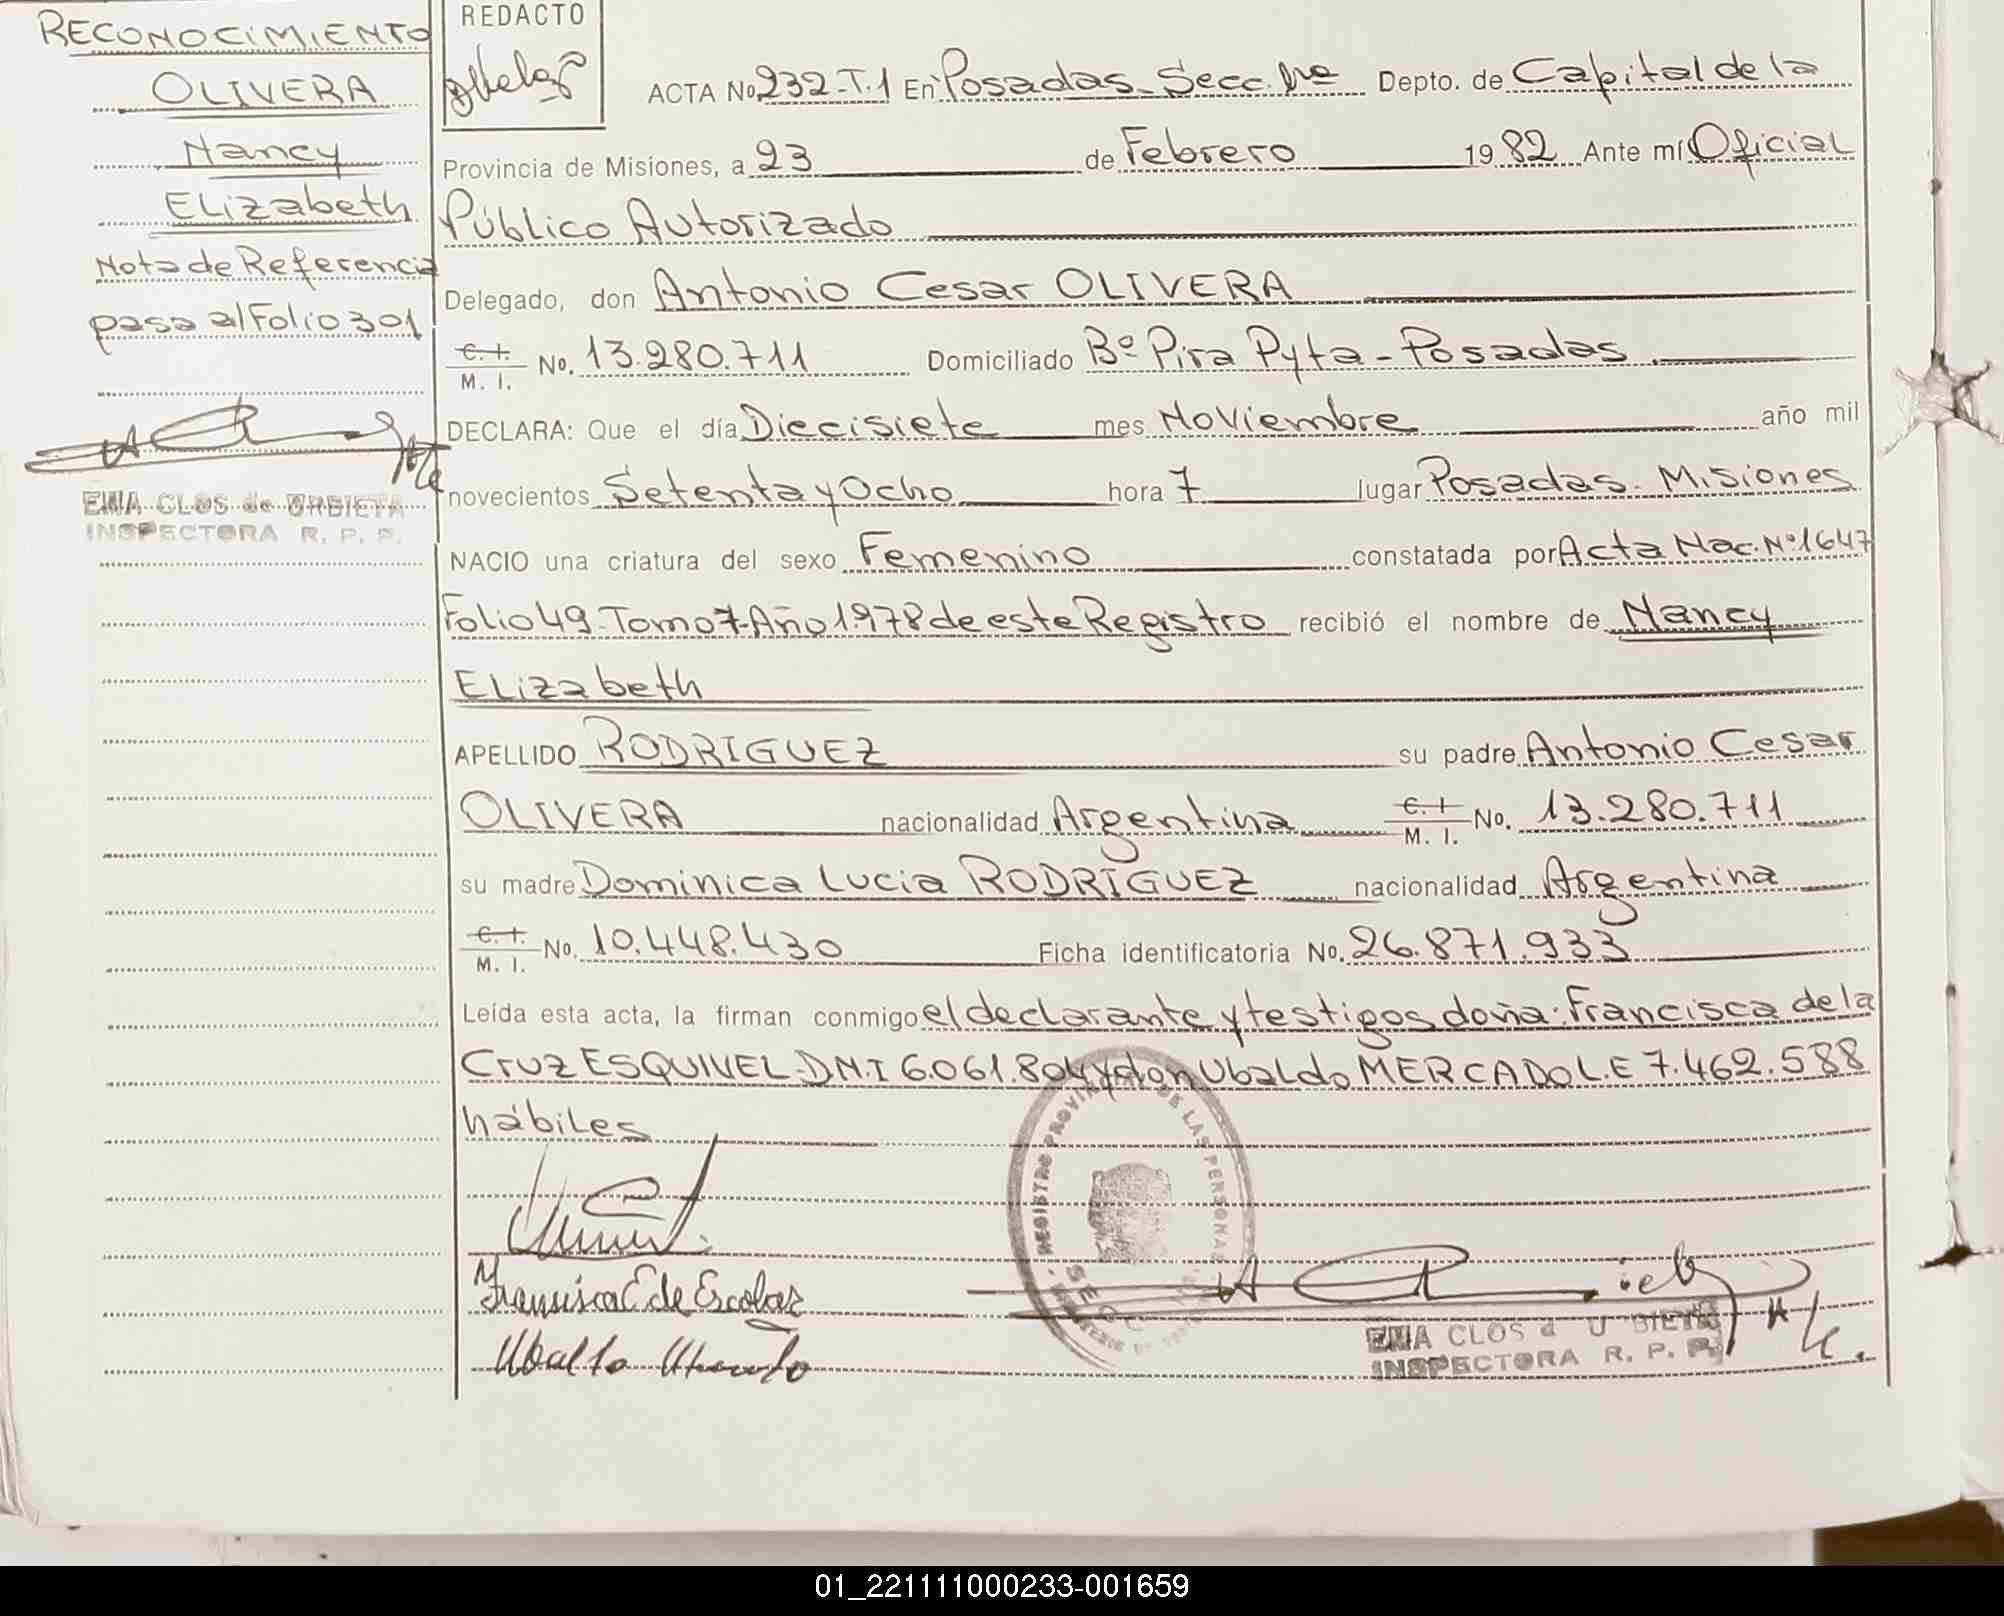 RECONOCIMIENTO
OLIVERA
Nancy
Elizabeth
Nota de Referencia
pasa al Folio 301
EMA CLOS de URBIETA
INSPECTORA R. P. P.
REDACTO
ACTA No. 232-T.1 En Posadas-Secc. 1ra Depto. de Capital de la
Provincia de Misiones, a 23 de Febrero 1982 Ante mí Oficial
Público Autorizado
Delegado, don Antonio Cesar OLIVERA
C. I. / M. I. No. 13.280.711 Domiciliado Bº Pira Pyta - Posadas
DECLARA: Que el día Diecisiete mes Noviembre año mil
novecientos Setenta y Ocho hora 7 lugar Posadas. Misiones
NACIO una criatura del sexo Femenino constatada por Acta Nac. Nº 1647
Folio 49-Tomo 7-Año 1.978 de este Registro recibió el nombre de Nancy
Elizabeth
APELLIDO RODRIGUEZ su padre Antonio Cesar
OLIVERA nacionalidad Argentina C. I. / M. I. No. 13.280.711
su madre Dominica Lucia RODRIGUEZ nacionalidad Argentina
C. I. / M. I. No. 10.448.430 Ficha identificatoria No. 26.871.933
Leída esta acta, la firman conmigo el declarante y testigos doña: Francisca de la
Cruz ESQUIVEL-DN.I 6.061.804 y don Ubaldo MERCADO L.E 7.462.588
hábiles
Fransisca E de Escobar
REGISTRO PROVINCIAL DE LAS PERSONAS
SECC
EMA CLOS d U BIETA
INSPECTORA R. P. P.
01_221111000233-001659